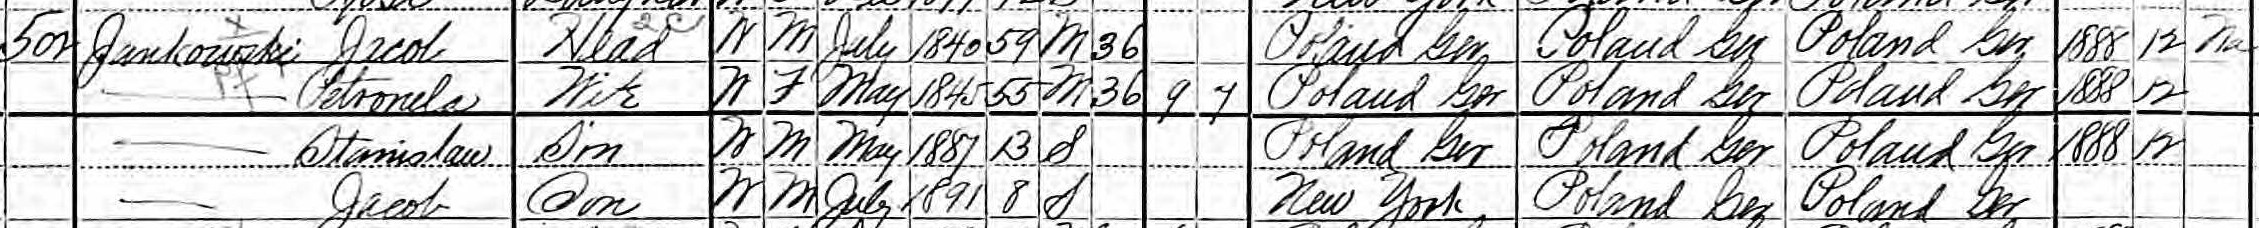 New York
502 Jankowski Jacob Head W M July 1840 59 M 36 Poland Ger Poland Ger Poland Ger 1888 12 Na
— Petronela Wife W F May 1845 55 M 36 9 7 Poland Ger Poland Ger Poland Ger 1888 12
— Stanislaw Son W M May 1887 13 S Poland Ger Poland Ger Poland Ger 1888 12
— Jacob Son W M July 1891 8 S New York Poland Ger Poland Ger